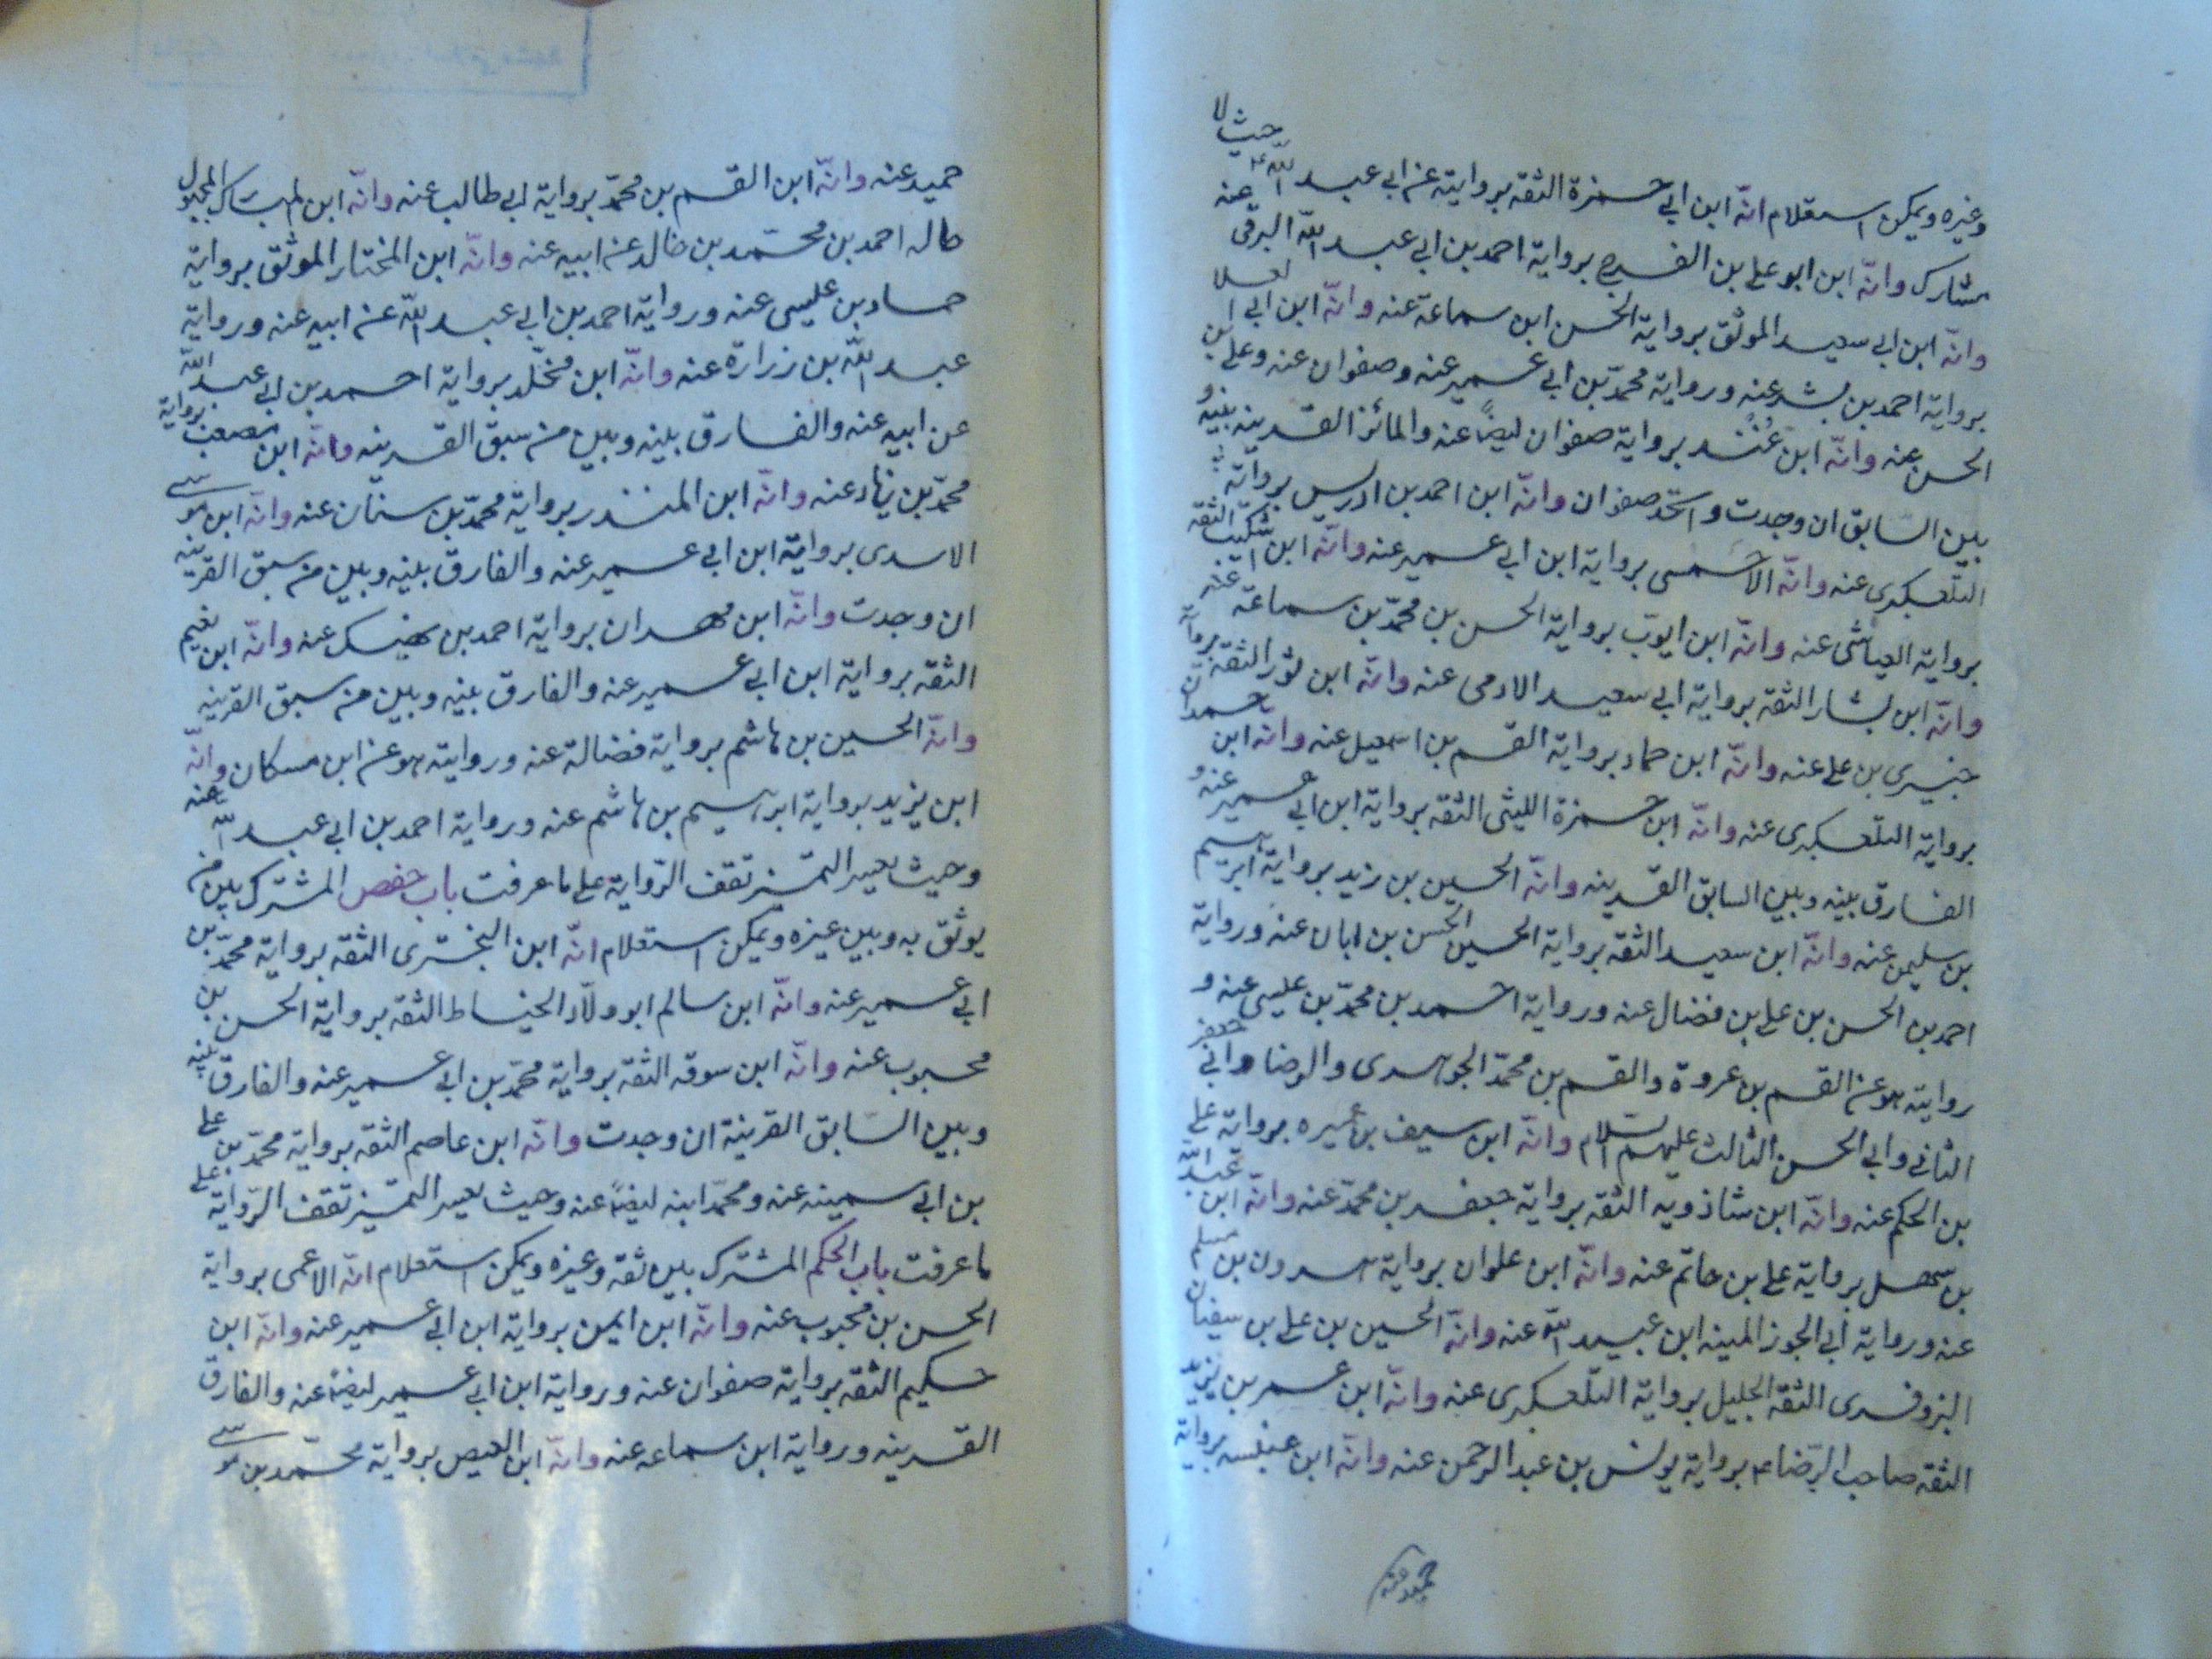 وغيره ويمكن استعلام انّه ابن ابي حمزة الثقه بروايته عن ابي عبد اللّه ع حيث لا
مشارك وانّه ابن ابو علي بن الفرج برواية احمد بن ابي عبد اللّه البرقي عنه
وانّه ابن ابي سعيد الموثق برواية الحسن ابن سماعة عنه وانّه ابن ابي العلا
برواية احمد بن بشر عنه ورواية محمّد بن ابي عمير عنه وصفوان عنه وعلي بن
الحسن عنه وانّه ابن عُنْدر برواية صفوان ايضاً عنه والمائز القرينه بينه و
بين السّابق ان وجدت واتّحد صفوان وانّه ابن احمد بن ادريس برواية
التلّعكبرى عنه وانّه الاحمسى برواية ابن ابي عمير عنه وانّه ابن اشكيب الثقه
برواية العياشى عنه وانّه ابن ايوب برواية الحسن بن محمّد بن سماعة عنه
وانّه ابن بشار الثقه برواية ابي سعيد الادمى عنه وانّه ابن ثور الثقه برواية
خيبرى بن علي عنه وانّه ابن حماد برواية القسم بن اسمعيل عنه وانّه ابن حمدان
برواية التلّعكبرى عنه وانّه ابن حمزة الليثى الثقه برواية ابن ابي عمير عنه و
الفارق بينه وبين السابق القرينه وانّه الحسين بن زيد برواية ابرهيم
بن سليمن عنه وانّه ابن سعيد الثقه برواية الحسين الحسن بن ابان عنه ورواية
احمد بن الحسن بن علي بن فضال عنه ورواية احمد بن محمّد بن عيسى عنه و
روايته هو عن القسم بن عروة والقسم بن محمّد الجوهرى والرضا وابي جعفر
الثانى وابي الحسن الثالث عليهم السّلام وانّه ابن سيف بن عميره برواية علي
بن الحكم عنه وانّه ابن شاذويه الثقه برواية جعفر بن محمّد عنه وانّه ابن عبد اللّه
بن سهل برواية علي بن حاتم عنه وانّه ابن علوان برواية هرون بن مسلم
عنه ورواية ابي الجوز المينه ابن عبيد اللّه عنه وانّه الحسين بن علي بن سفيان
البزوفرى الثقه الجليل برواية التلّعكبرى عنه وانّه ابن عمر بن يزيد
الثقه صاحب الرّضا ع برواية يونس بن عبد الرحمن عنه وانّه ابن عنبسه برواية
حميد عنه
حميد عنه وانّه ابن القسم بن محمّد برواية ابي طالب عنه وانّه ابن المبارك المجهول
حاله احمد بن محمّد بن خالد عن ابيه عنه وانّه ابن المختار الموثق برواية
حماد بن عيسى عنه ورواية احمد بن ابي عبد اللّه عن ابيه عنه ورواية
عبد اللّه بن زرارة عنه وانّه ابن مخلّد برواية احمد بن ابي عبد اللّه
عن ابيه عنه والفارق بينه وبين من سبق القرينه وانّه ابن مصعب برواية
محمّد بن زياد عنه وانّه ابن المنذر برواية محمّد بن سنان عنه وانّه ابن موسى
الاسدى برواية ابن ابي عمير عنه والفارق بينه وبين من سبق القرينه
ان وجدت وانّه ابن مهران برواية احمد بن نهيك عنه وانّه ابن نعيم
الثقه برواية ابن ابي عمير عنه والفارق بينه وبين من سبق القرينه
وانّه الحسين بن هاشم برواية فضالة عنه وروايته هو عن ابن مسكان وانّه
ابن يزيد برواية ابرهيم بن هاشم عنه ورواية احمد بن ابي عبد اللّه عنه
وحيث يعسر التميز تقف الرّواية على ما عرفت باب حفص المشترك بين من
يوثق به وبين غيره ويمكن استعلام انّه ابن البخترى الثقه برواية محمّد بن
ابي عمير عنه وانّه ابن سالم ابو ولّاد الحناط الثقه برواية الحسن بن
محبوب عنه وانّه ابن سوقه الثقه برواية محمّد بن ابي عمير عنه والفارق بينه
وبين السّابق القرينة ان وجدت وانّه ابن عاصم الثقه برواية محمّد بن علي
بن ابي سمينه عنه ومحمّد ابنه ايضاً عنه وحيث يعسر التميّز تقف الرّواية على
ما عرفت باب الحكم المشترك بين ثقه وغيره ويمكن استعلام انّه الاعمى برواية
الحسن بن محبوب عنه وانّه ابن ايمن برواية ابن ابي عمير عنه وانّه ابن
حكيم الثقه برواية صفوان عنه ورواية ابن ابي عمير ايضاً عنه والفارق
القرينه ورواية ابن سماعه عنه وانّه ابن العيص برواية محمّد بن موسى